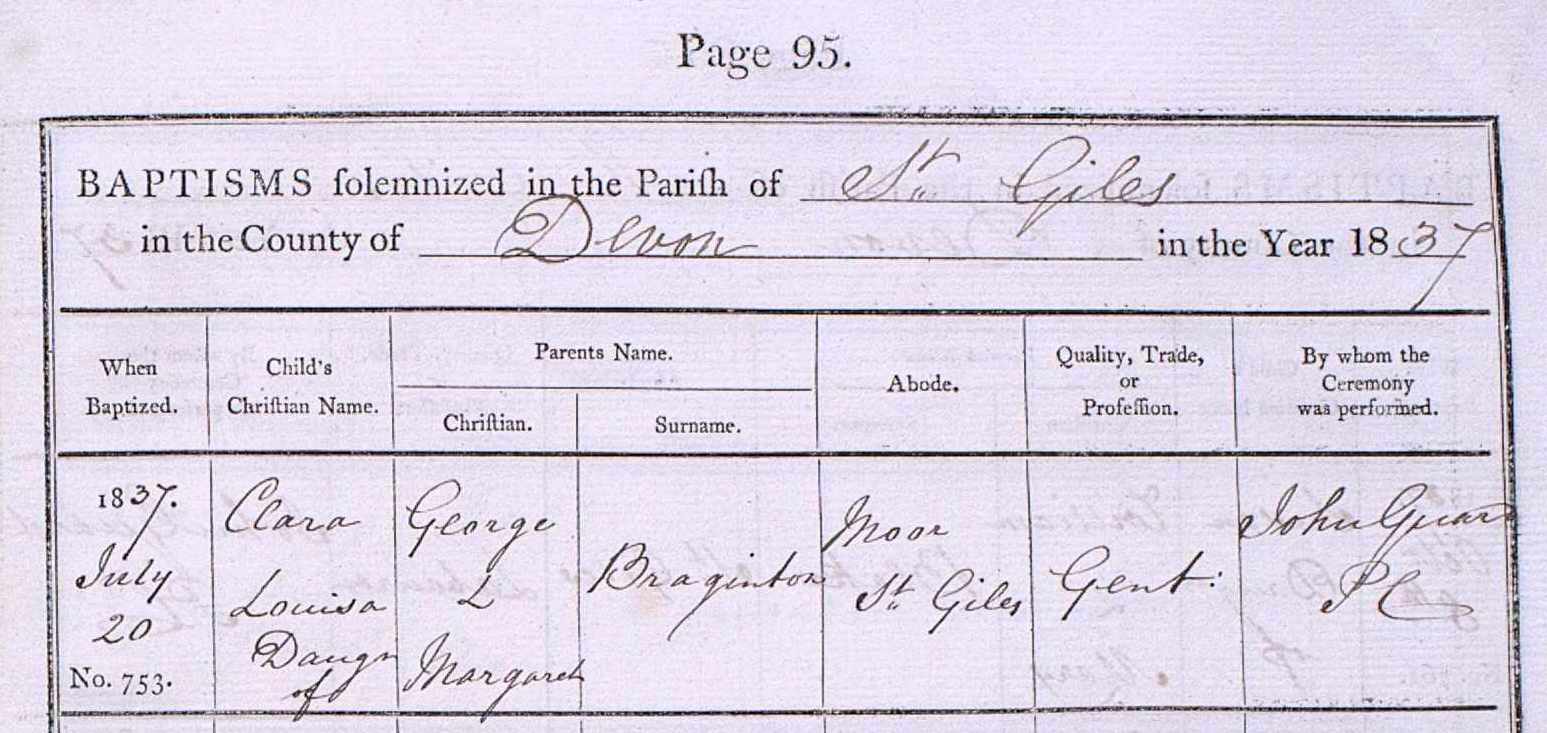 Page 95.
BAPTISMS ſolemnized in the Pariſh of St. Giles
in the County of Devon in the Year 1837
When
Baptized.
Child's
Chriſtian Name.
Parents Name.
Chriſtian.
Surname.
Abode.
Quality, Trade,
or
Profeſſion.
By whom the
Ceremony
was performed.
1837.
July
20
No. 753.
Clara
Louisa
Daugr
of
George
&
Margaret
Braginton
Moor
St. Giles
Gent:
John Guard
P C